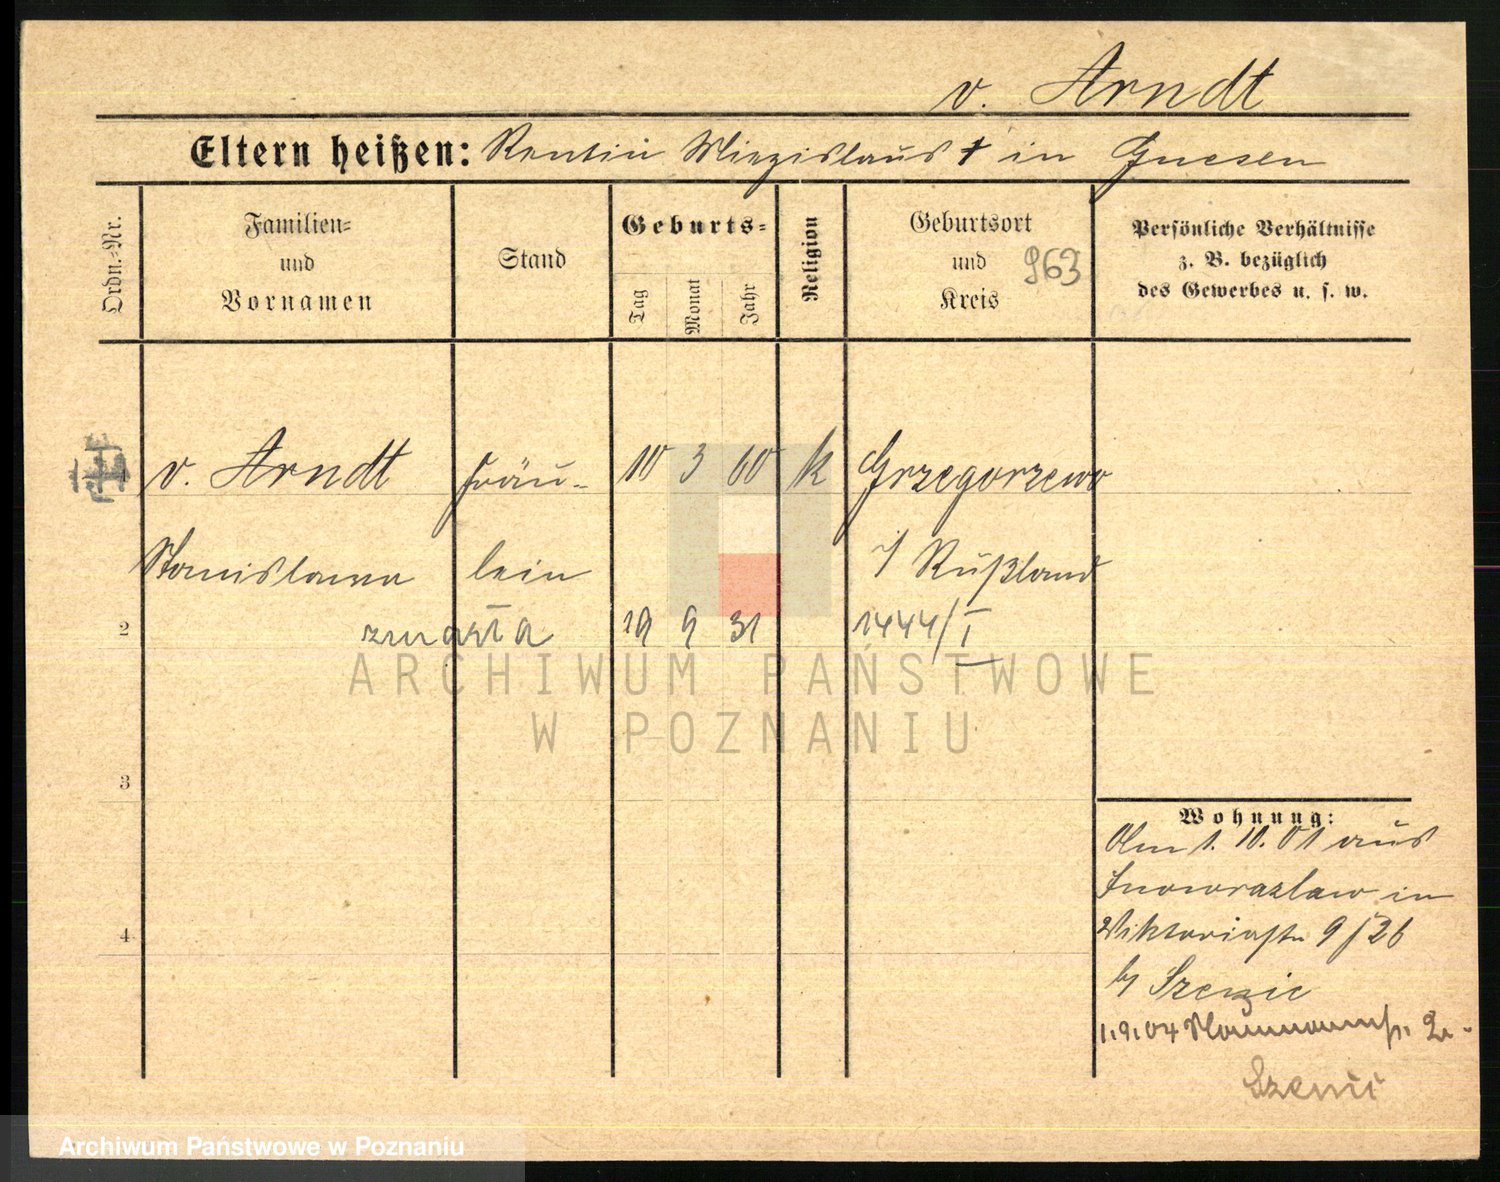 v. Arndt
Eltern heißen: Rentier Miezislaus † in Gnesen
Ordn.-Nr.
Familien- und Vornamen
Stand
Geburts-
Tag
Monat
Jahr
Religion
Geburtsort und Kreis
963
Persönliche Verhältnisse
z. B. bezüglich
des Gewerbes u. s. w.
v. Arndt Fräu- 10 3 60 k Grzegorzewo
Stanislawa lein i/ Rußland
2 zmarła 19 9 31 1444/I
3
4
Wohnung:
Am 1. 10. 01 aus
Inowrazlaw in
Viktoriastr 9/26
b/
1.9.04 Naumannstr.
ARCHIWUM PAŃSTWOWE
W POZNANIU
Archiwum Państwowe w Poznaniu